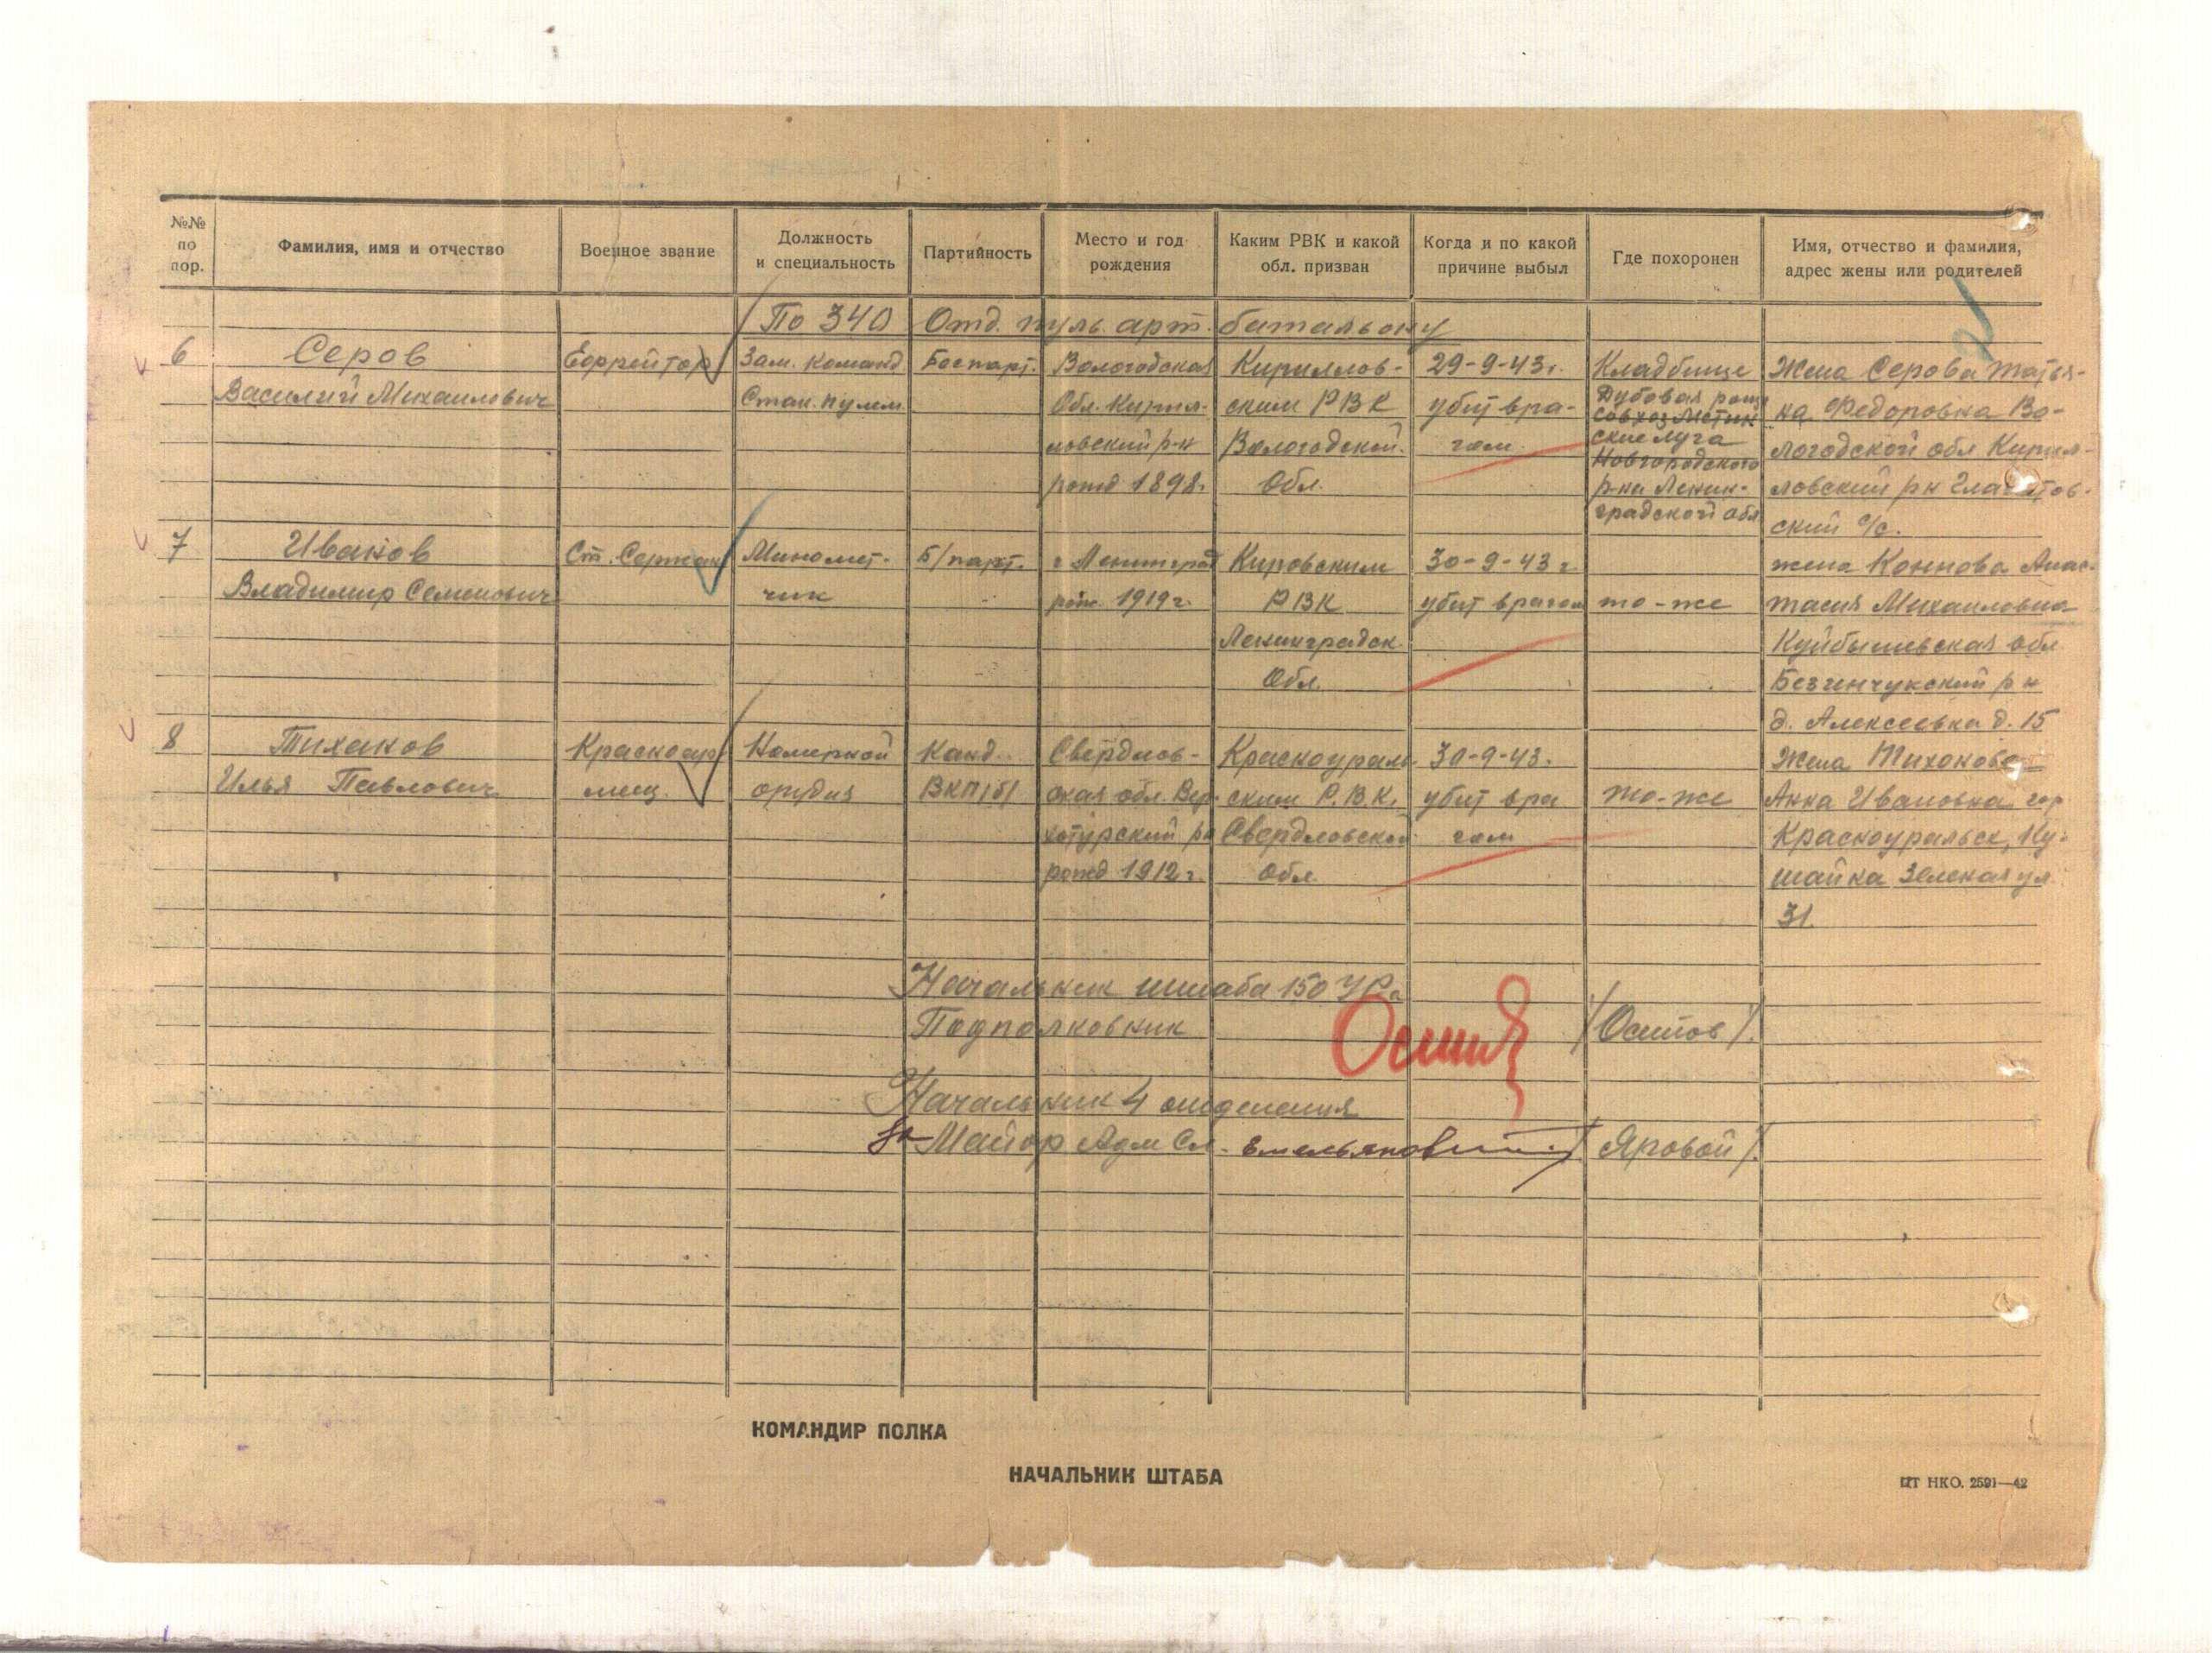 №№ по пор.
Фамилия, имя и отчество
Военное звание
Должность и специальность
Партийность
Место и год рождения
Каким РВК и какой обл. призван
Когда и по какой причине выбыл
Где похоронен
Имя, отчество и фамилия, адрес жены или родителей
По 340 Отд. пуль. арт. батальону
6
Серов
Василий Михаилович
Ефрейтор
Зам. команд
Стан. пулем.
Беспарт.
Вологодская
Обл. Кирил-
ловский р-н
рожд 1898г.
Кириллов-
ским РВК
Вологодской.
Обл.
29-9-43г.
убит вра-
гом
Кладбище
Дубовая роща
совхоз Мстин
ские луга
Новгородского
р-на Ленин-
градской обл
Жена Серова Татья-
на Федоровна Во-
логодской обл Кирил-
ловский р н
ский с/с.
7
Иванов
Владимир Семенович
Ст. Сержан
Миномет-
чик
Б/парт.
г Ленинград
рож. 1919г.
Кировским
РВК
Ленинградск.
Обл.
30-9-43 г.
убит врагом
то-же
жена Коннова Анас-
тасия Михаиловна
Куйбышевская обл
Безенчукский р н
д. Алексеевка д. 15
8
Тихонов
Илья Павлович
Красноар
меец.
Номерной
орудия
Канд.
ВКП/б/
Свердлов-
ская обл. Вер-
хотурский рн
рожд 1912г.
Красноураль-
ским Р.В.К.
Свердловской
Обл
30-9-43.
убит вра
гом
то-же
Жена Тихонова
Анна Ивановна гор
Красноуральск, Ку-
шайка Зеленая ул
31.
Начальник штаба 150 УРа
Подполковник
Осипов
/Осипов/.
Начальник 4 отделения
Майор Адм Сл.
/Яровой/.
КОМАНДИР ПОЛКА
НАЧАЛЬНИК ШТАБА
ЦТ НКО. 2591—42